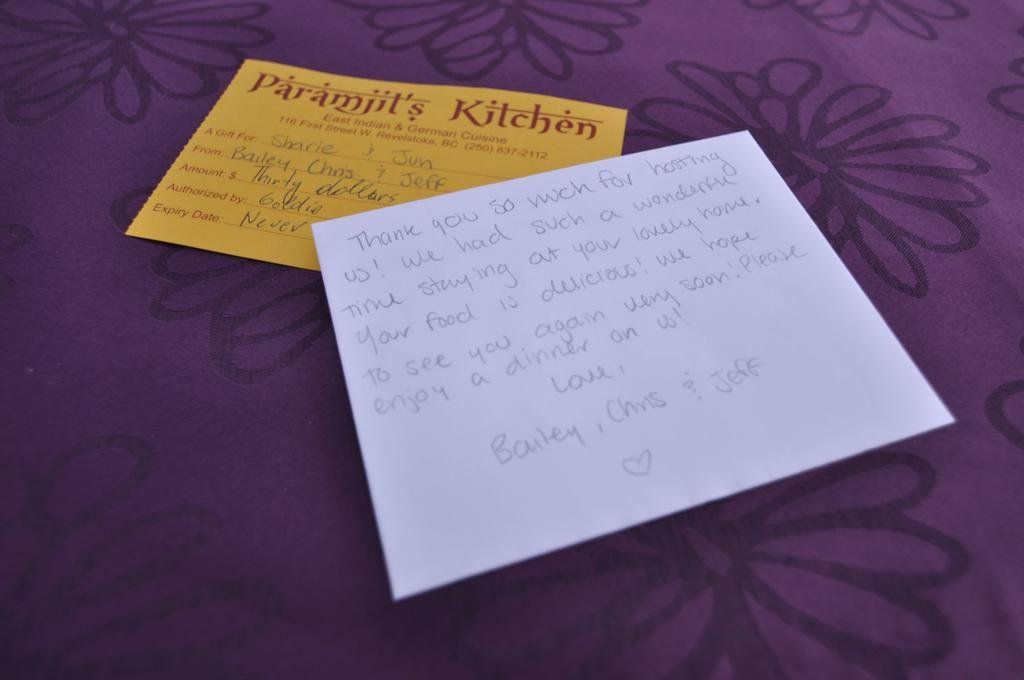 Paramjit's Kitchen
East Indian & German Cuisine
116 First Street W. Revelstoke, BC (250) 837-2112
A Gift For: Sharie & Jun
From: Bailey, Chris & Jeff
Amount: $ Thirty dollars
Authorized by: Goldie
Expiry Date: Never
Thank you so much for hosting
us! We had such a wonderful
time staying at your lovely home.
Your food is delicious! We hope
to see you again very soon! Please
enjoy a dinner on us!
Love,
Bailey, Chris & Jeff